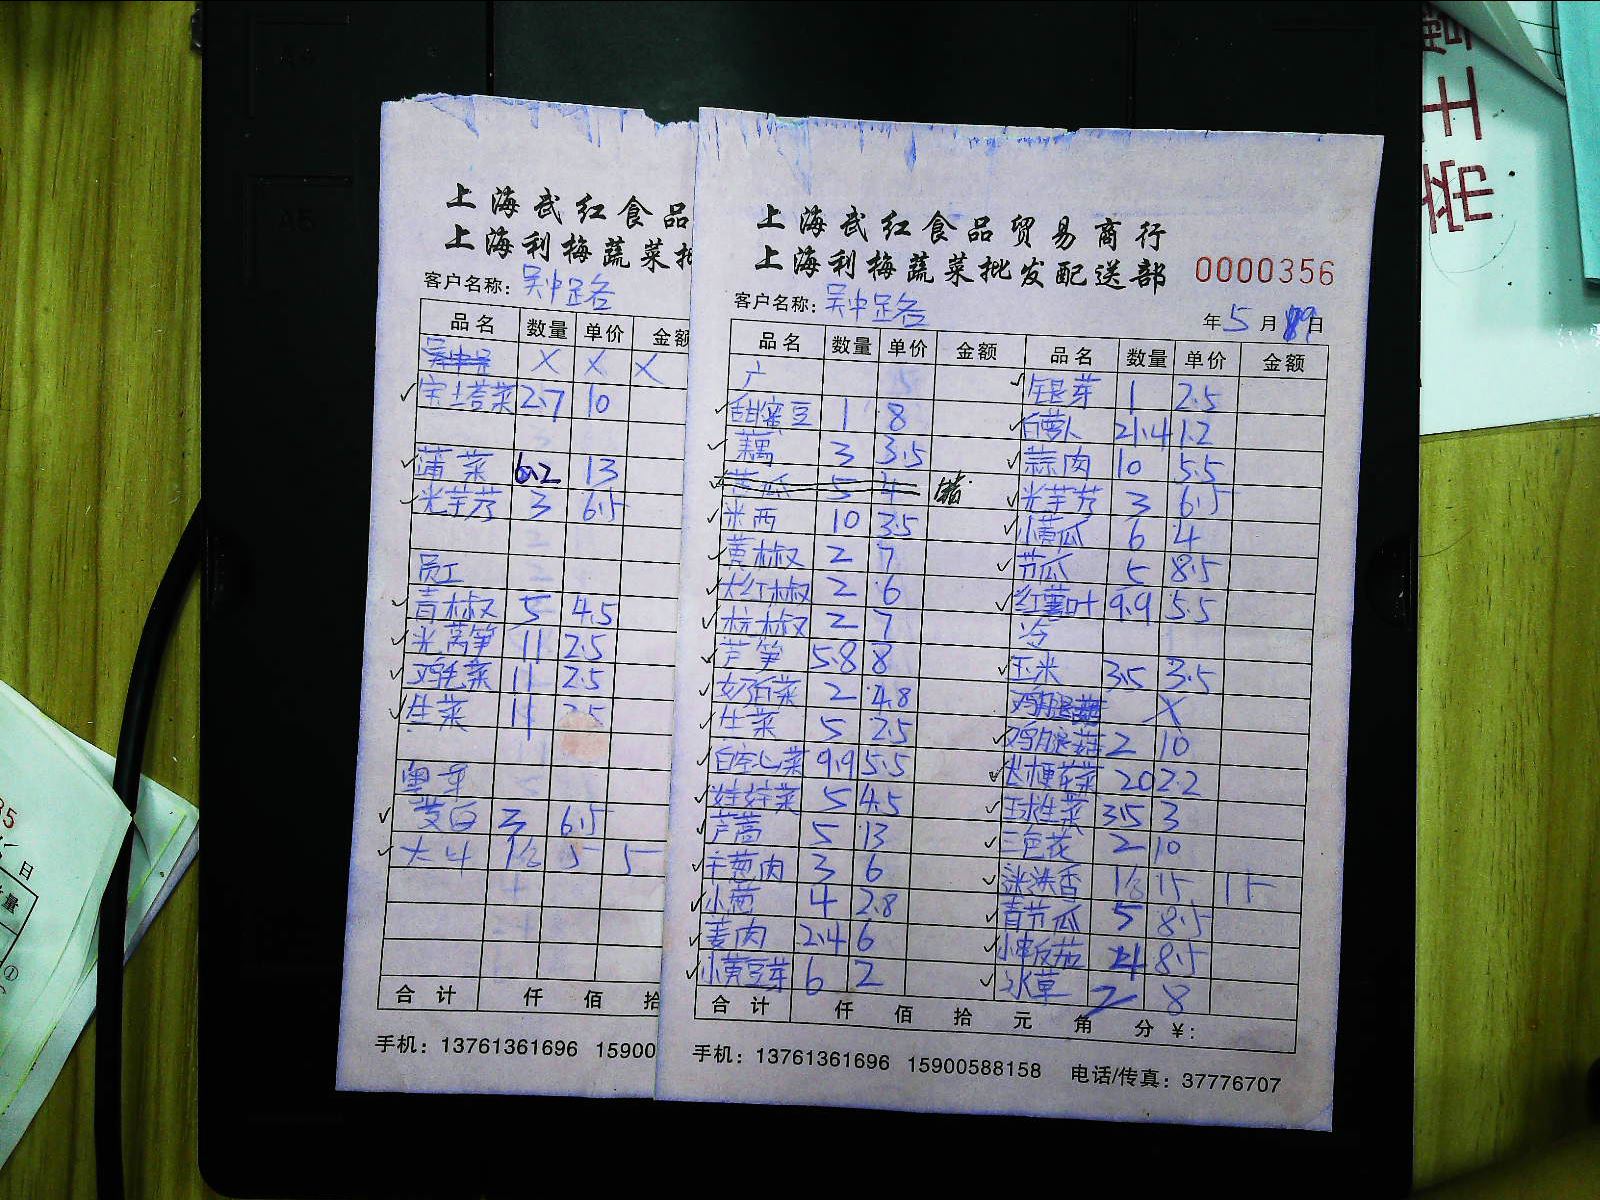 上海武红食品
上海利梅蔬菜批
客户名称：吴中路
品名 数量 单价 金额
X X X
宝塔菜 2.7 10
蒲菜 6.2 13
光芋艿 3 6.5
员工
青椒 5 4.5
光莴笋 11 2.5
鸡毛菜 11 2.5
生菜 11 2.5
茭白 3 6.5
5 5
合计 仟 佰 拾
手机：13761361696 15900
上海武红食品贸易商行
上海利梅蔬菜批发配送部 0000356
客户名称：吴中路
年5月19日
品名 数量 单价 金额 品名 数量 单价 金额
广 银芽 1 2.5
甜蜜豆 1 8 白萝卜 21.4 1.2
藕 3 3.5 蒜肉 10 5.5
苦瓜 5 4 光芋艿 3 6.5
米西 10 3.5 小黄瓜 6 4
黄椒 2 7 节瓜 5 8.5
大红椒 2 6 红薯叶 9.9 5.5
杭椒 2 7 冷
芦笋 5.8 8 玉米 35 3.5
奶白菜 2 4.8 X
生菜 5 2.5 鸡腿菇 2 10
白空心菜 9.9 5.5 长梗花菜 20 2.2
娃娃菜 5 4.5 球生菜 35 3
芦蒿 5 13 三色花 2 10
干葱肉 3 6 迷迭香 15 15
小葱 4 2.8 青节瓜 5 8.5
姜肉 2.4 6 小番茄 4 8.5
小黄豆芽 6 2 水草 2 8
合计 仟 佰 拾 元 角 分 ¥：
手机：13761361696 15900588158 电话/传真：37776707
帝王
35
日
量